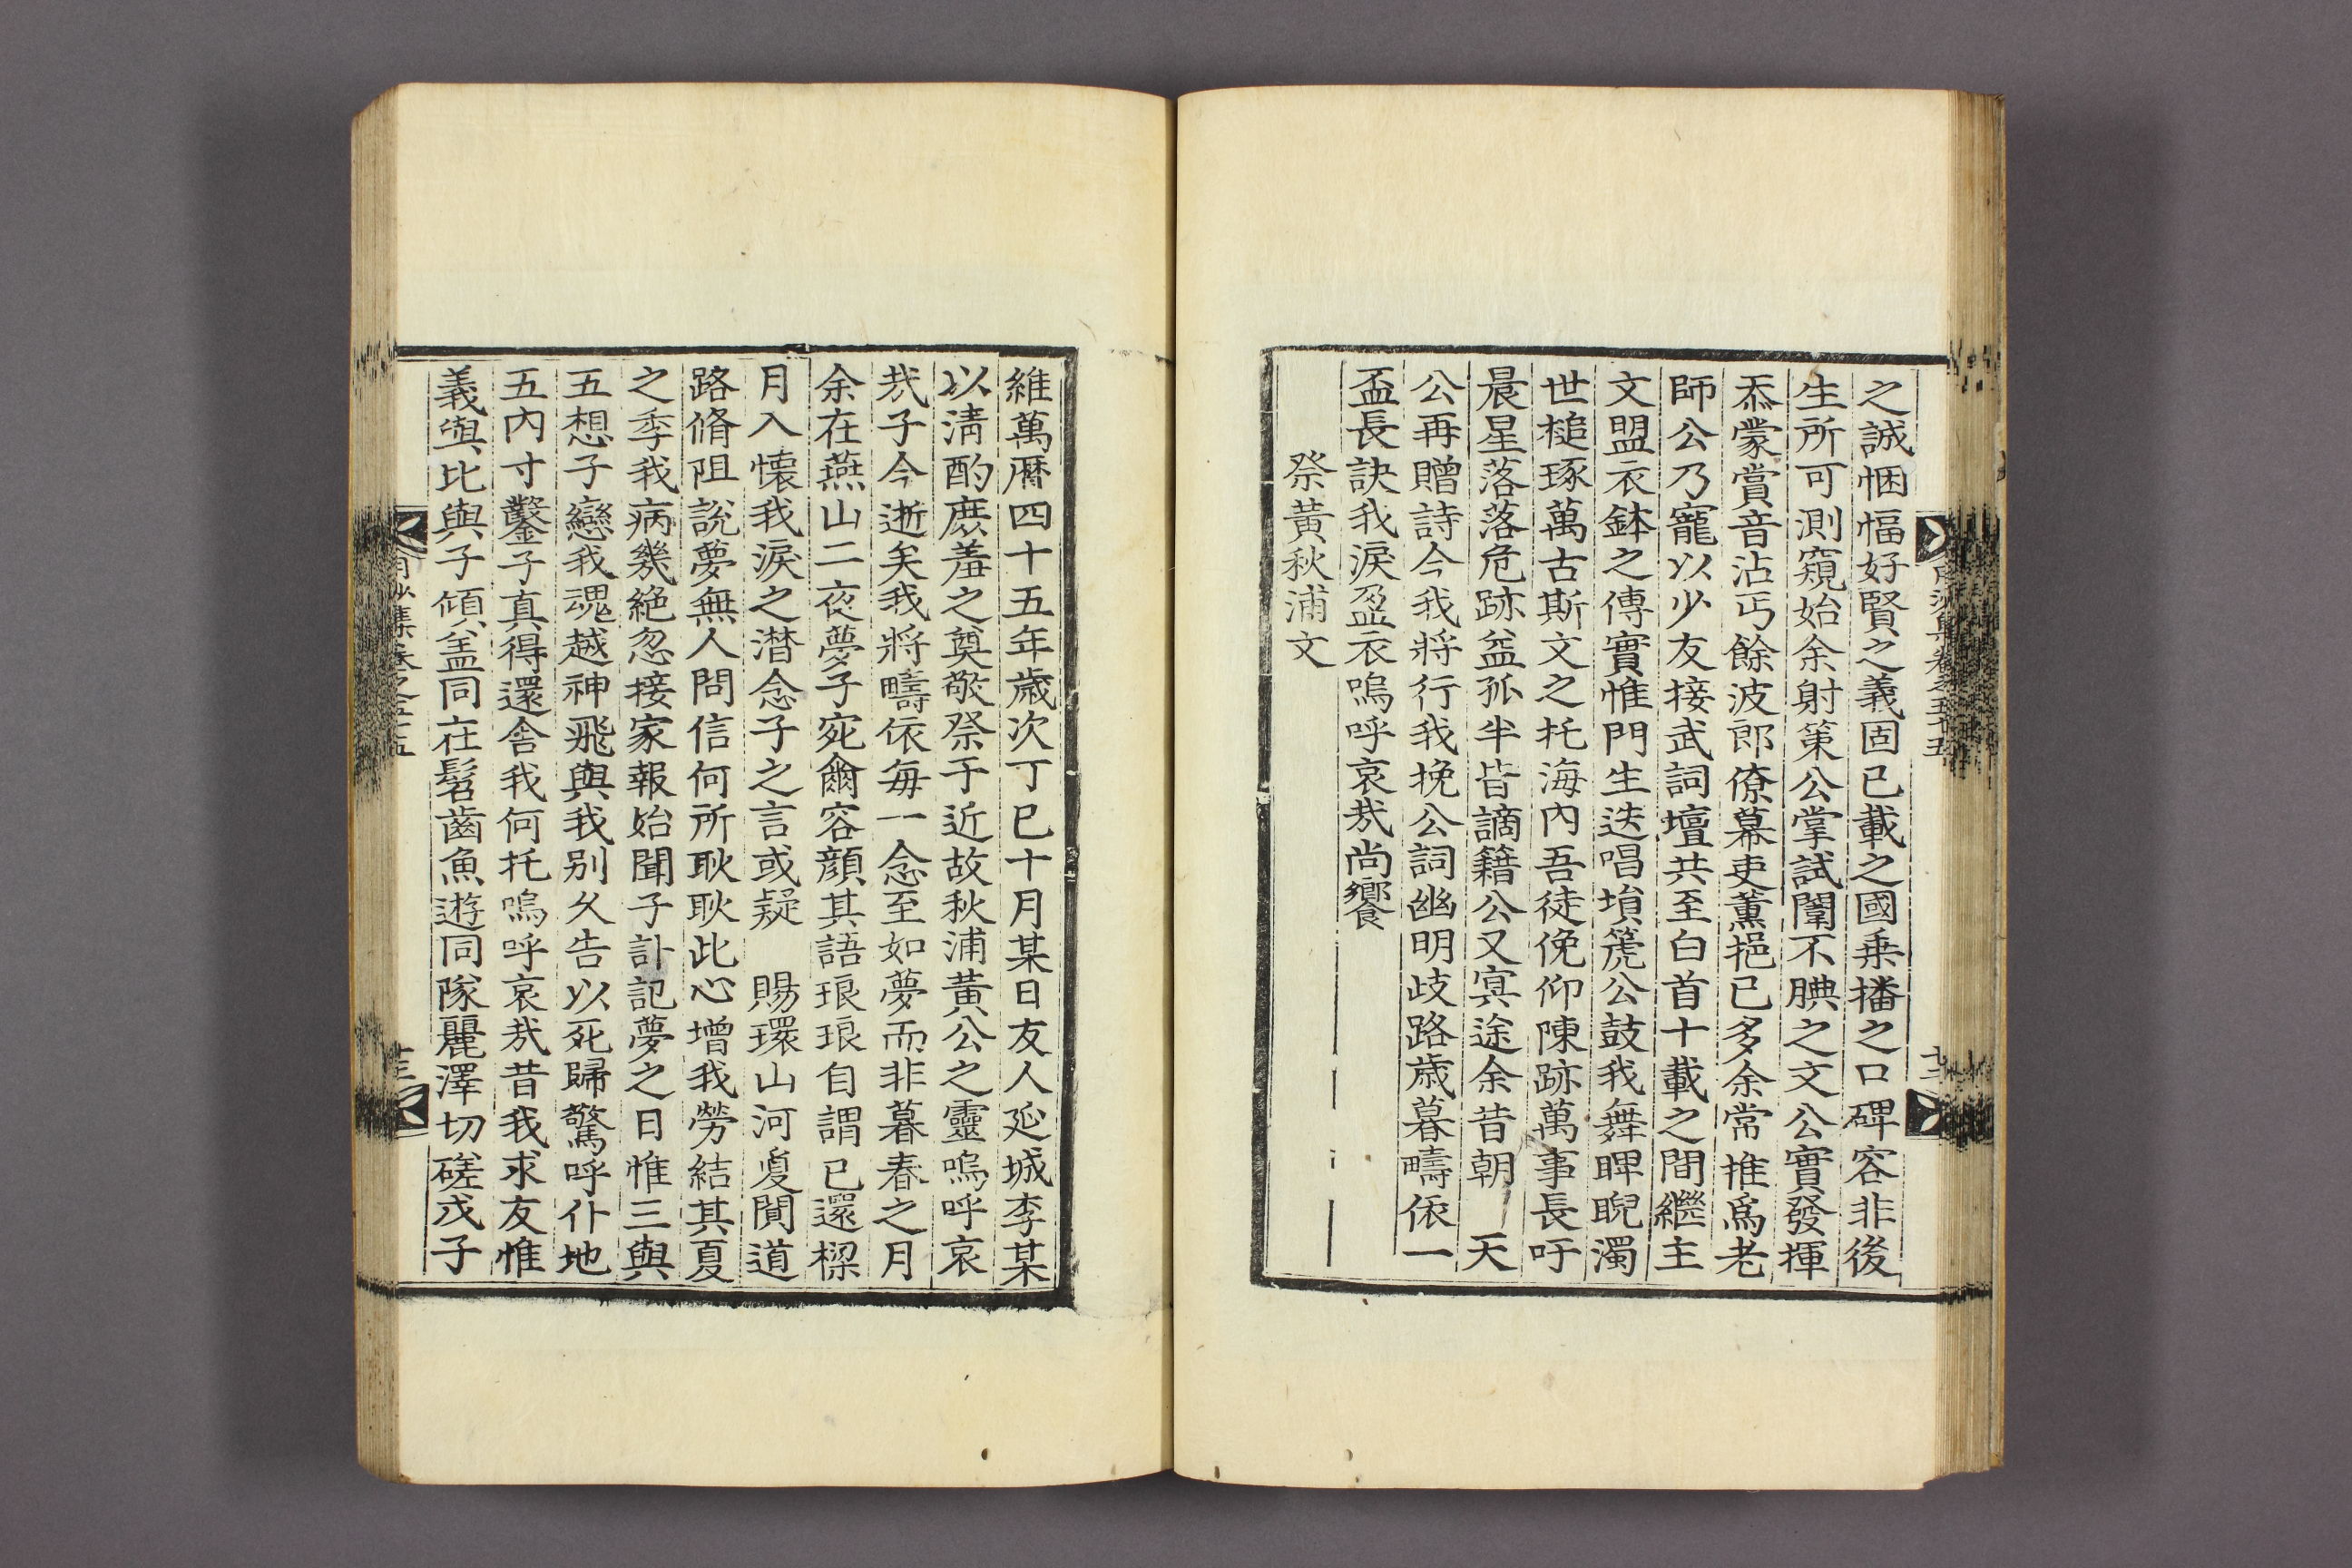 之誠悃愊好賢之義固已載之國乗播之口碑容非後
生所可測窺始余射策公掌試闈不腆之文公實發揮
忝蒙賞音沾丐餘波郎僚幕吏薫挹已多余常推爲老
師公乃寵以少友接武詞壇共至白首十載之間繼主
文盟衣鉢之傳實惟門生迭唱塤篪公鼓我舞睥睨濁
世槌琢萬古斯文之托海內吾徒俛仰陳跡萬事長吁
晨星落落危跡益孤半皆謫籍公又冥途余昔朝 天
公再贈詩今我將行我挽公詞幽明歧路歲暮疇依一
盃長訣我淚盈衣嗚呼哀哉尚饗
祭黃秋浦文
維萬曆四十五年歲次丁巳十月某日友人延城李某
以淸酌庶羞之奠敬祭于近故秋浦黃公之靈嗚呼哀
哉子今逝矣我將疇依每一念至如夢而非暮春之月
余在燕山二夜夢子宛爾容顔其語琅琅自謂已還樑
月入懷我淚之潸念子之言或疑 賜環山河夐闃道
路脩阻說夢無人問信何所耿耿此心增我勞結其夏
之季我病幾絶忽接家報始聞子訃記夢之日惟三與
五想子戀我魂越神飛與我别久告以死歸驚呼仆地
五內寸鑿子真得還舍我何托嗚呼哀哉昔我求友惟
義與比與子傾盖同在髫齒魚遊同隊麗澤切磋戎子